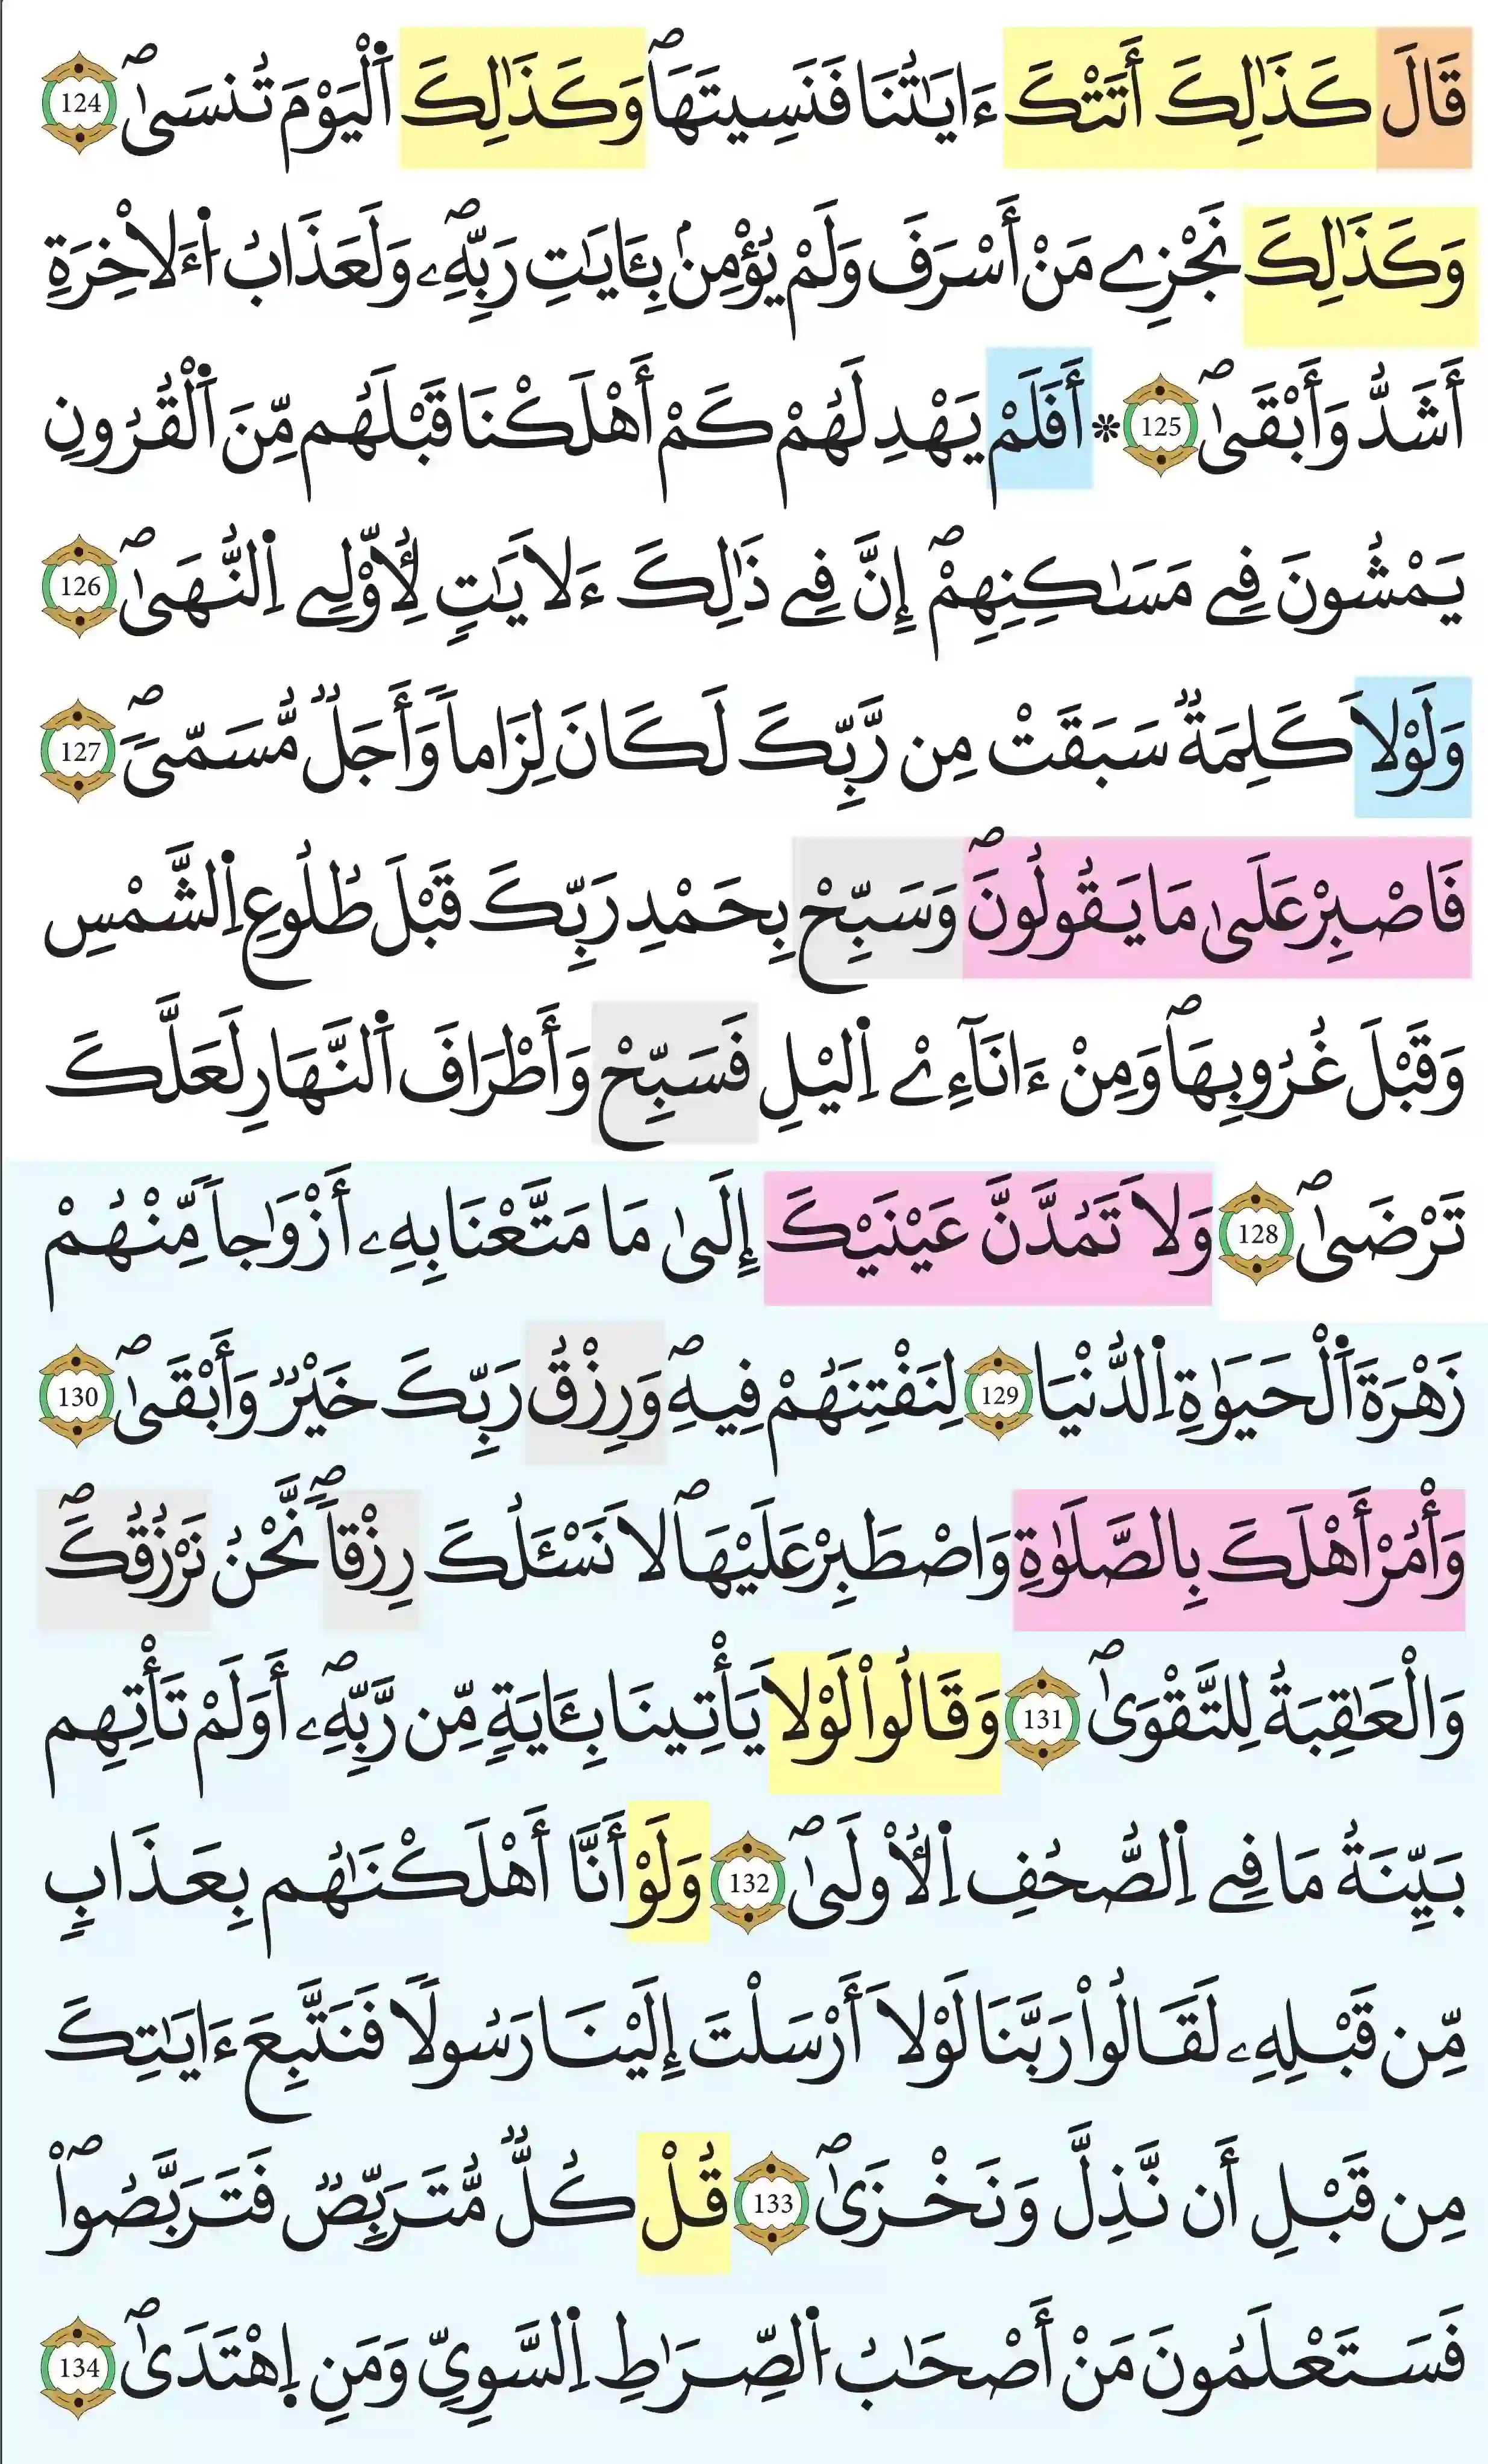 قَالَ كَذَٰلِكَ أَتَتْكَ ءَايَٰتُنَا فَنَسِيتَهَاۖ وَكَذَٰلِكَ اَ۬لْيَوْمَ تُنسَىٰۖ 124
وَكَذَٰلِكَ نَجْزِے مَنْ أَسْرَفَ وَلَمْ يُؤْمِنۢ بِـَٔايَٰتِ رَبِّهِۦۖ وَلَعَذَابُ اُ۬ءَلَاخِرَةِ
أَشَدُّ وَأَبْقَىٰٓۖ 125 ۞ أَفَلَمْ يَهْدِ لَهُمْ كَمْ أَهْلَكْنَا قَبْلَهُم مِّنَ اَ۬لْقُرُونِ
يَمْشُونَ فِے مَسَٰكِنِهِمْۖ إِنَّ فِے ذَٰلِكَ ءَلَايَٰتٍ لِّأُوْلِے اِ۬لنُّهَىٰۖ 126
وَلَوْلَا كَلِمَةٞ سَبَقَتْ مِن رَّبِّكَ لَكَانَ لِزَاماٗ وَأَجَلٞ مُّسَمّىٗۖ 127
فَاصْبِرْ عَلَىٰ مَا يَقُولُونَۖ وَسَبِّحْ بِحَمْدِ رَبِّكَ قَبْلَ طُلُوعِ اِ۬لشَّمْسِ
وَقَبْلَ غُرُوبِهَاۖ وَمِنْ ءَانَآءِےْ اِ۬ليْلِ فَسَبِّحْ وَأَطْرَافَ اَ۬لنَّهَارِ لَعَلَّكَ
تَرْضَىٰۖ 128 وَلَا تَمُدَّنَّ عَيْنَيْكَ إِلَىٰ مَا مَتَّعْنَا بِهِۦ أَزْوَٰجاٗ مِّنْهُمْ
زَهْرَةَ اَ۬لْحَيَوٰةِ اِ۬لدُّنْيَا 129 لِنَفْتِنَهُمْ فِيهِۖ وَرِزْقُ رَبِّكَ خَيْرٞ وَأَبْقَىٰۖ 130
وَأْمُرْ أَهْلَكَ بِالصَّلَوٰةِ وَاصْطَبِرْ عَلَيْهَاۖ لَا نَسْـَٔلُكَ رِزْقاٗۖ نَّحْنُ نَرْزُقُكَۖ
وَالْعَٰقِبَةُ لِلتَّقْوَىٰۖ 131 وَقَالُواْ لَوْلَا يَأْتِينَا بِـَٔايَةٖ مِّن رَّبِّهِۦۖ أَوَلَمْ تَأْتِهِم
بَيِّنَةُ مَا فِے اِ۬لصُّحُفِ اِ۬لُاولَىٰۖ 132 وَلَوْ أَنَّا أَهْلَكْنَٰهُم بِعَذَابٖ
مِّن قَبْلِهِۦ لَقَالُواْ رَبَّنَا لَوْلَا أَرْسَلْتَ إِلَيْنَا رَسُولاٗ فَنَتَّبِعَ ءَايَٰتِكَ
مِن قَبْلِ أَن نَّذِلَّ وَنَخْزَىٰۖ 133 قُلْ كُلّٞ مُّتَرَبِّصٞ فَتَرَبَّصُواْۖ
فَسَتَعْلَمُونَ مَنْ أَصْحَٰبُ اُ۬لصِّرَٰطِ اِ۬لسَّوِيِّ وَمَنِ اِ۪هْتَدَىٰۖ 134